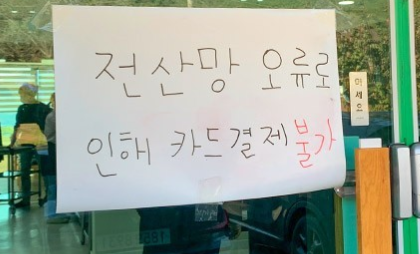 전산망 오류로
인해 카드결제 불가
하세요